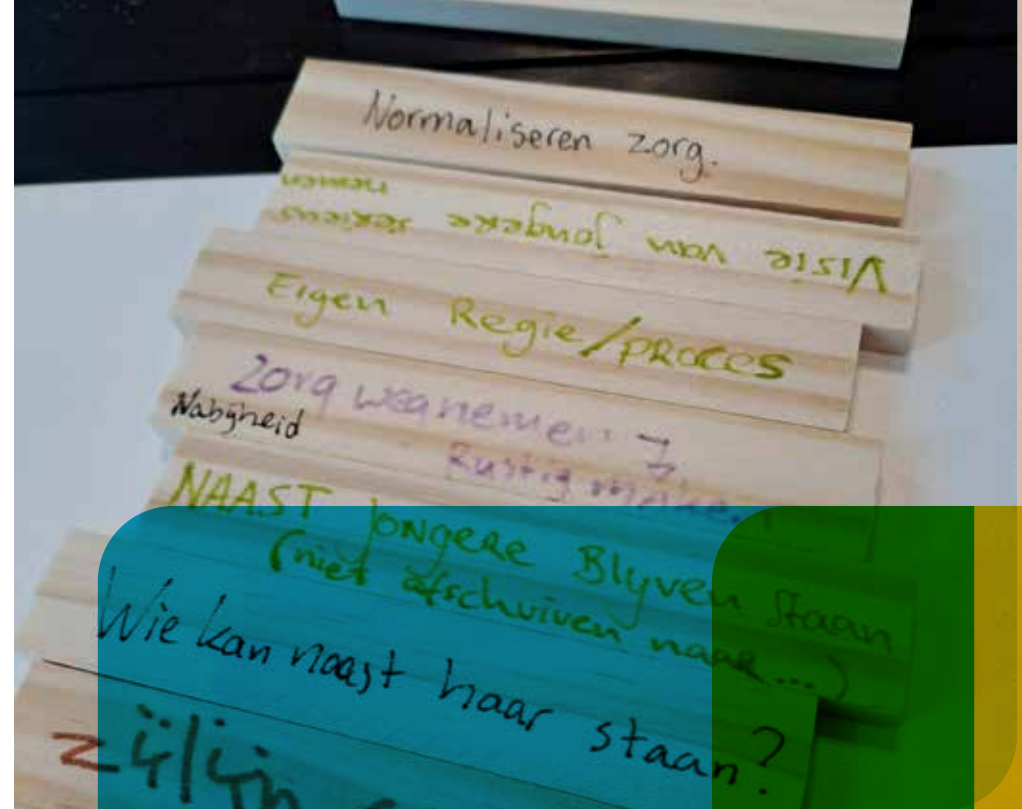 Normaliseren zorg.
Visie van jongere serieus
nemen
Eigen Regie/proces
Zorg wegnemen →
Nabijheid
Rustig maken
NAAST jongere Blyven staan
(niet afschuiven naar...)
Wie kan naast haar staan?
zijlijn